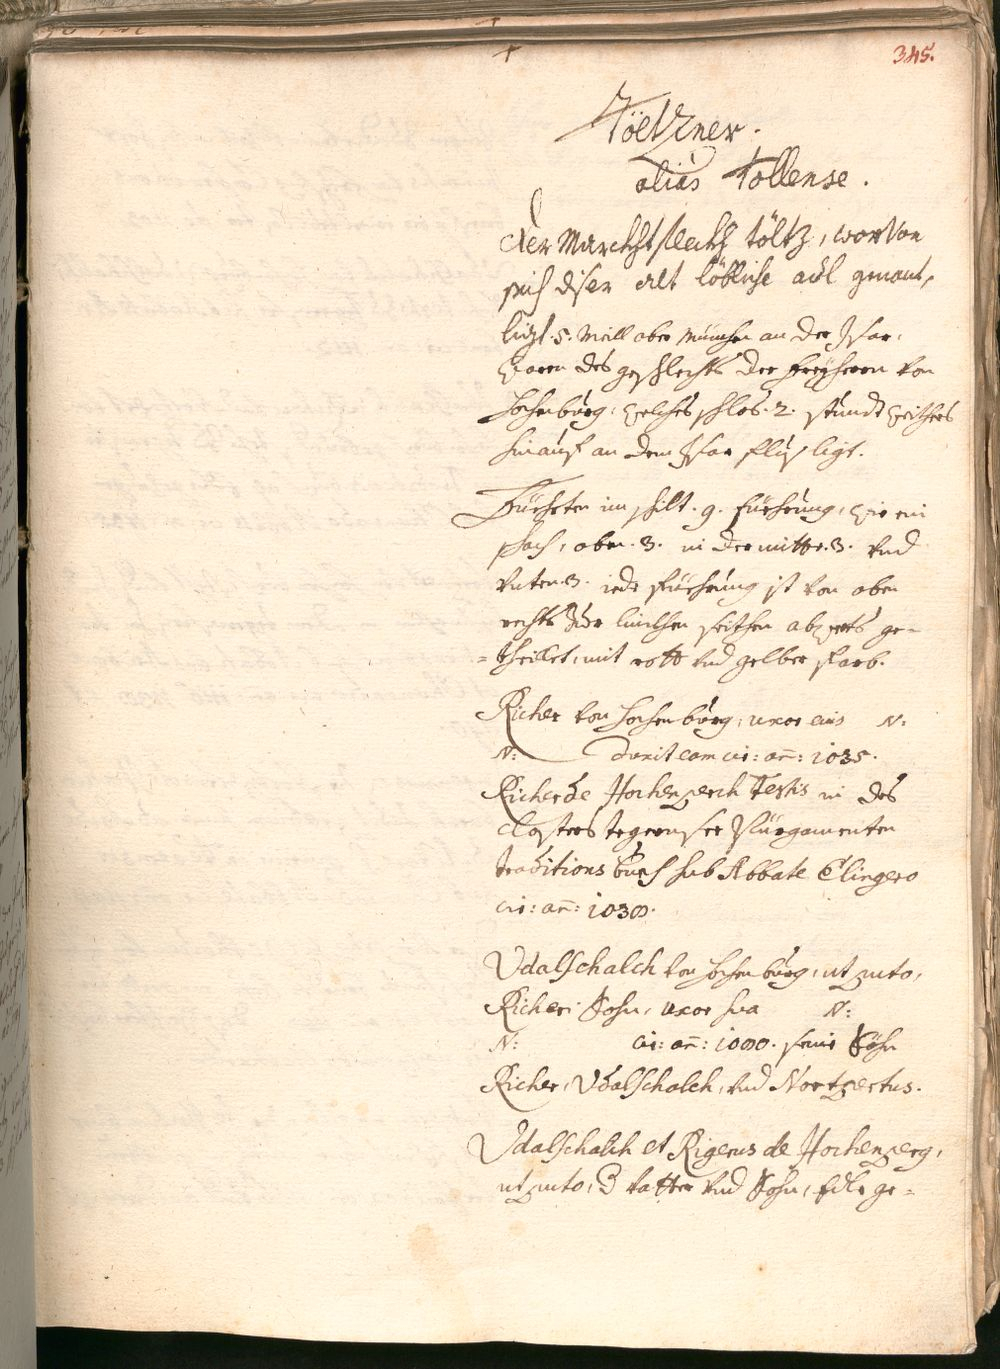 345.
Töltzner.
alias Tollense.
der Marchtfleckh töltz, worvon
sich diser alt lobliche adl genant,
ligt. 5. Meill ober München an der Isar,
waren des geschlechts der Freyherrn von
Hochenburg, welches schlos. 2. stundt weithers
hinauf an dem Isar fluss ligt.
Fuehrten im schilt. 9. fuehrung, wie ein
schach, oben. 3. in der mitte. 3. vnd
vnten. 3. iede fuehrung ist von oben
rechts zur linckhen seithen abwerts ge-
=theillet, mit rott vnd gelber farb.
Richer von Hochenburg, uxor eius N:
N: vixit cum ea: an: 1035.
Richer de Hochenperch Testis in des
Closters tegernsee pürgamenten
traditions buech sub Abbate Elingero
an: 1030.
Vdalschalch von Hochenburg, ut puto,
Richeri Sohn, uxor sua N:
N: an: 1080. seine Söhn
Richer, Vdalschalch, vnd Nortpertus.
Vdalschalch et Rigerus de Hochenperg,
ut puto, vatter vnd Sohn, Edle ge=